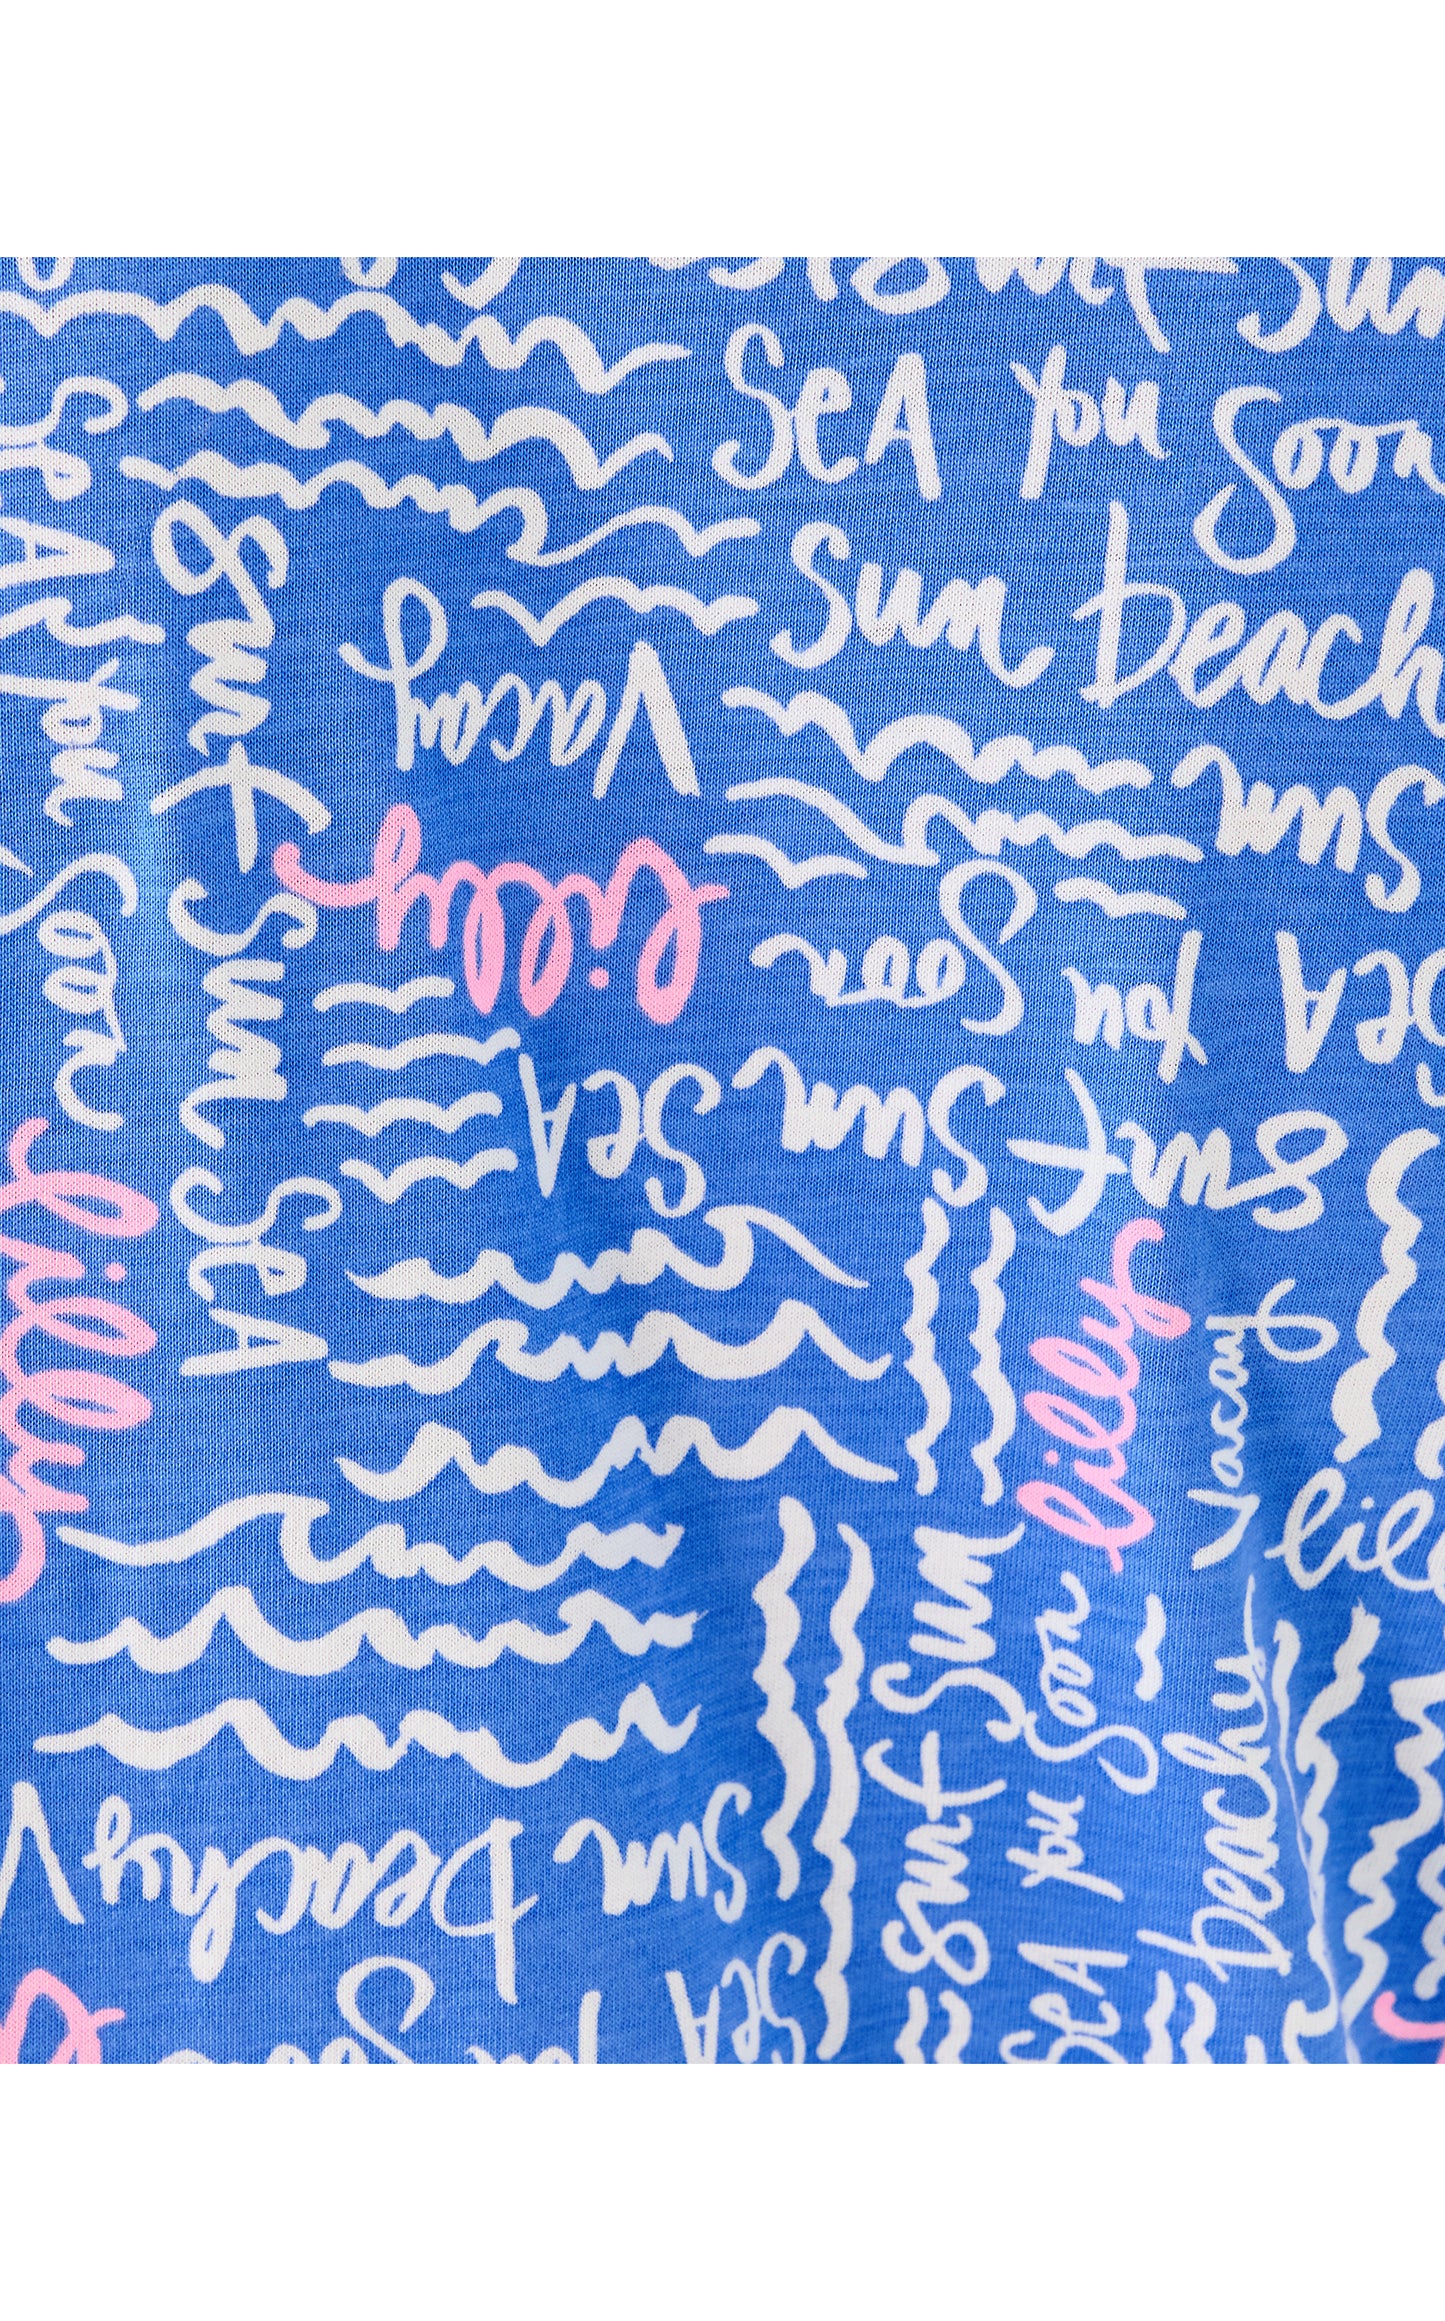 & Surf Sun
SeA you Soon
Sun beach
SeA you Soon
& Surf Sun SeA
Vacay
lilly
Sun
SeA you Soon
Sun SeA
& Surf
lilly
lilly
Vacay
lil
Sun
& Surf
SeA you Soon
beachy
Sun beachy
SeA